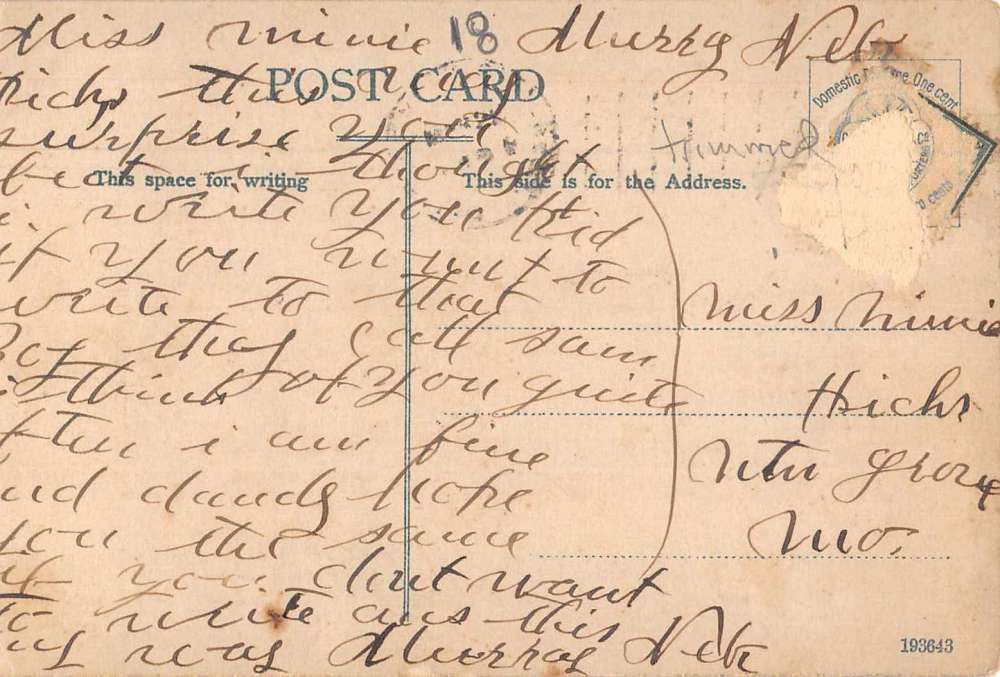 Miss Minnie 18 Murray Neb
Hicks this may
surprise you
but i thought
i write you Kid
if you want to
write to that
Boy they Call Sam
i think of you quite
often i am fine
and dandy hope
you the same
if you dont want
to write ans this
any way Murray Neb
POST CARD
This space for writing
This side is for the Address.
Domestic One cent
Miss Minnie
Hicks
Mtn Grove
Mo.
193643